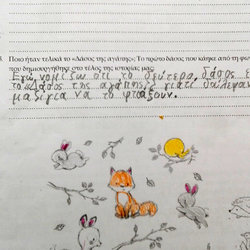 Ποιο ήταν τελικά το «Δάσος της αγάπης»; Το πρώτο δάσος που κάηκε από τη φω
που δημιουργήθηκε στο τέλος της ιστορίας μας;
Εγώ νομίζω ότι το δεύτερο δάσος ε
το «Δάσος της αγάπης» γιατί δούλεψαν
μαζί για να το φτιάξουν.